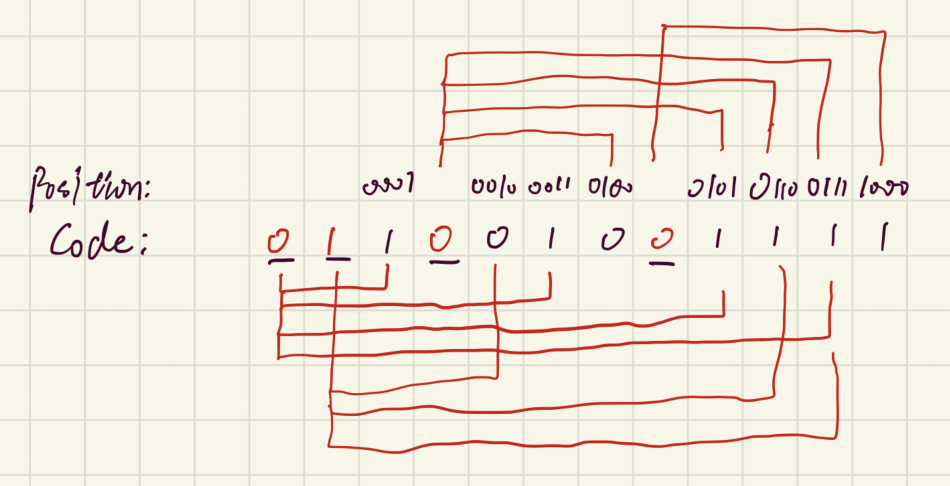 Position: 0001 0010 0011 0100 0101 0110 0111 1000
Code: 0 1 1 0 0 1 0 0 1 1 1 1